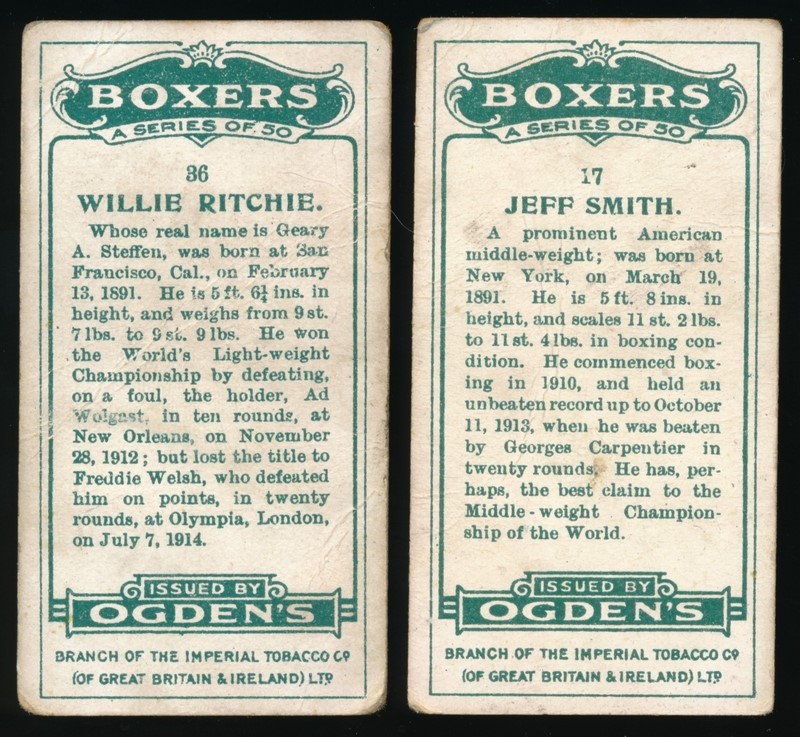 BOXERS
A SERIES OF 50
36
WILLIE RITCHIE.
Whose real name is Geary
A. Steffen, was born at San
Francisco, Cal., on February
13, 1891. He is 5 ft. 6¼ ins. in
height, and weighs from 9 st.
7 lbs. to 9 st. 9 lbs. He won
the World's Light-weight
Championship by defeating,
on a foul, the holder, Ad
Wolgast, in ten rounds, at
New Orleans, on November
28, 1912; but lost the title to
Freddie Welsh, who defeated
him on points, in twenty
rounds, at Olympia, London,
on July 7, 1914.
ISSUED BY
OGDEN'S
BRANCH OF THE IMPERIAL TOBACCO Co
(OF GREAT BRITAIN & IRELAND) LTD
BOXERS
A SERIES OF 50
17
JEFF SMITH.
A prominent American
middle-weight; was born at
New York, on March 19,
1891. He is 5 ft. 8 ins. in
height, and scales 11 st. 2 lbs.
to 11 st. 4 lbs. in boxing con-
dition. He commenced box-
ing in 1910, and held an
unbeaten record up to October
11, 1913, when he was beaten
by Georges Carpentier in
twenty rounds. He has, per-
haps, the best claim to the
Middle-weight Champion-
ship of the World.
ISSUED BY
OGDEN'S
BRANCH OF THE IMPERIAL TOBACCO Co
(OF GREAT BRITAIN & IRELAND) LTD